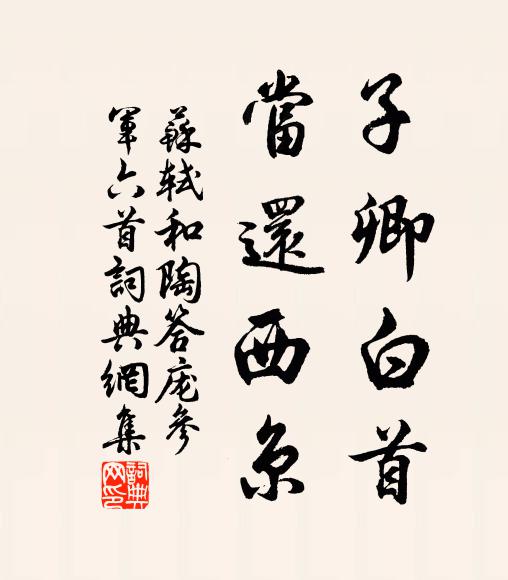 子卿白首
當還西京
蘇軾和陶答庞參
軍六首詞典網集
詞典网印